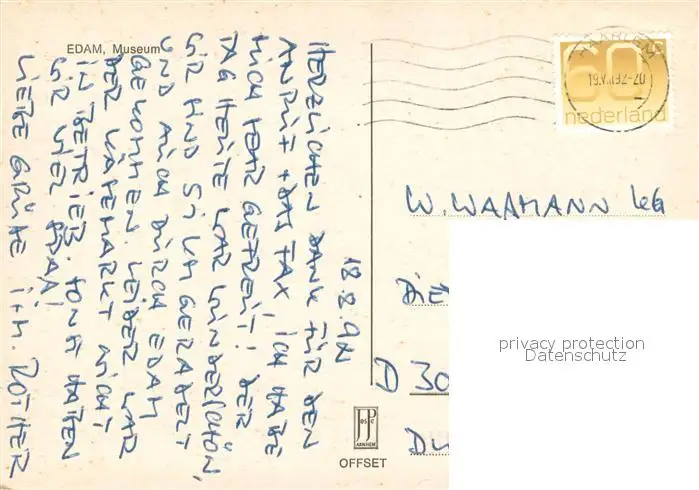 EDAM, Museum
18.8.94
HERZLICHEN DANK FÜR DEN
ANRUF + DAS FAX ICH HABE
MICH SEHR GEFREUT! DER
TAG HEUTE WAR WUNDERSCHÖN,
WIR SIND GERADELT
UND AUCH DURCH EDAM
GEKOMMEN. LEIDER WAR
DER KÄSEMARKT NICHT
IN BETRIEB. SONST HATTEN
WIR VIEL SPAß!
LIEBE GRÜßE I + H. ROTHER
60c
nederland
W. WAAMANN KG
DIE
D 30
DU
privacy protection
Datenschutz
ARNHEM
OFFSET